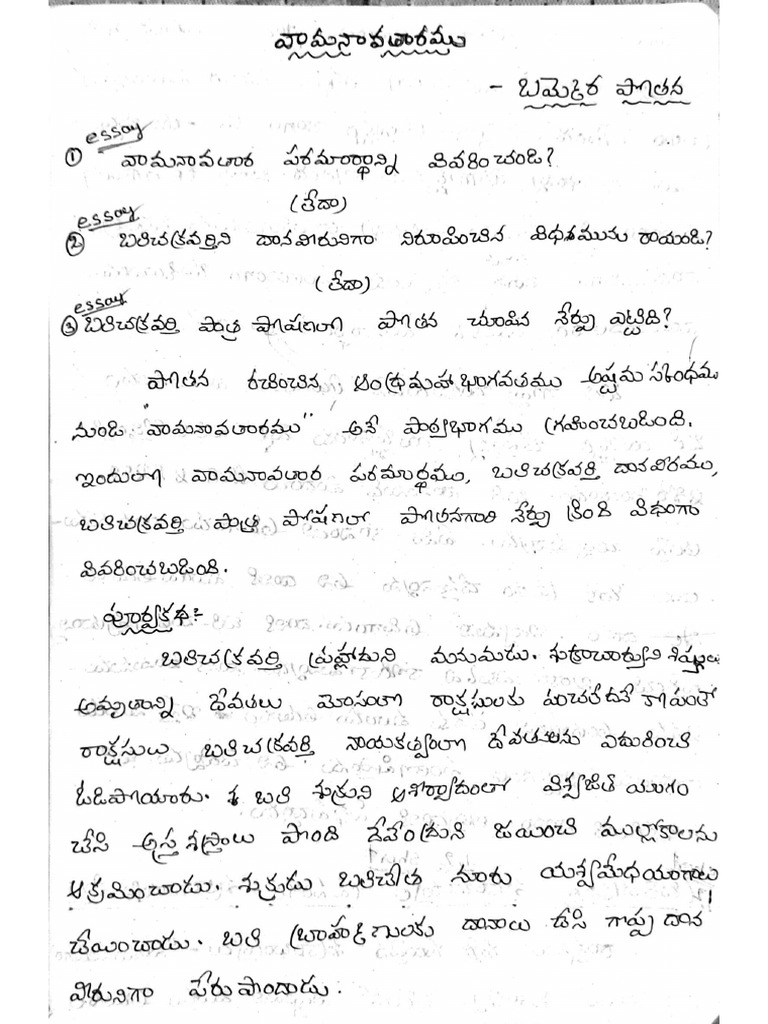 వామనావతారము
- బమ్మెర పోతన
essay
① వామనావతార పరమార్థాన్ని వివరించండి?
(లేదా)
essay
② బలిచక్రవర్తిని దానవీరునిగా నిరూపించిన విధానమును రాయండి?
(లేదా)
essay
③ బలిచక్రవర్తి పాత్ర పోషణలో పోతన చూపిన నేర్పు ఎట్టిది?
పోతన రచించిన ఆంధ్రమహా భాగవతము అష్టమ స్కంధము
నుండి వామనావతారము" అనే పాఠ్యభాగము గ్రహించబడింది.
ఇందులో వామనావతార పరమార్థము, బలిచక్రవర్తి దానవీరము,
బలిచక్రవర్తి పాత్ర పోషణలో పోతనగారి నేర్పు క్రింది విధంగా
వివరించబడింది.
పూర్వకథ:-
బలిచక్రవర్తి ప్రహ్లాదుని మనుమడు. శుక్రాచార్యుని శిష్యుడు.
అమృతాన్ని దేవతలు మోసంతో రాక్షసులకు పంచలేదనే కోపంతో
రాక్షసులు బలిచక్రవర్తి నాయకత్వంలో దేవతలను ఎదురించి
ఓడిపోయారు. బలి శుక్రుని ఆశీర్వాదంతో విశ్వజిత్ యాగం
చేసి అస్త్ర శస్త్రాలు పొంది దేవేంద్రుని జయించి ముల్లోకాలను
ఆక్రమించాడు. శుక్రుడు బలిచేత నూరు యశ్వమేధయాగాలు
చేయించాడు. బలి బ్రాహ్మణులకు దానాలు చేసి గొప్ప దాన
వీరునిగా పేరు పొందాడు.